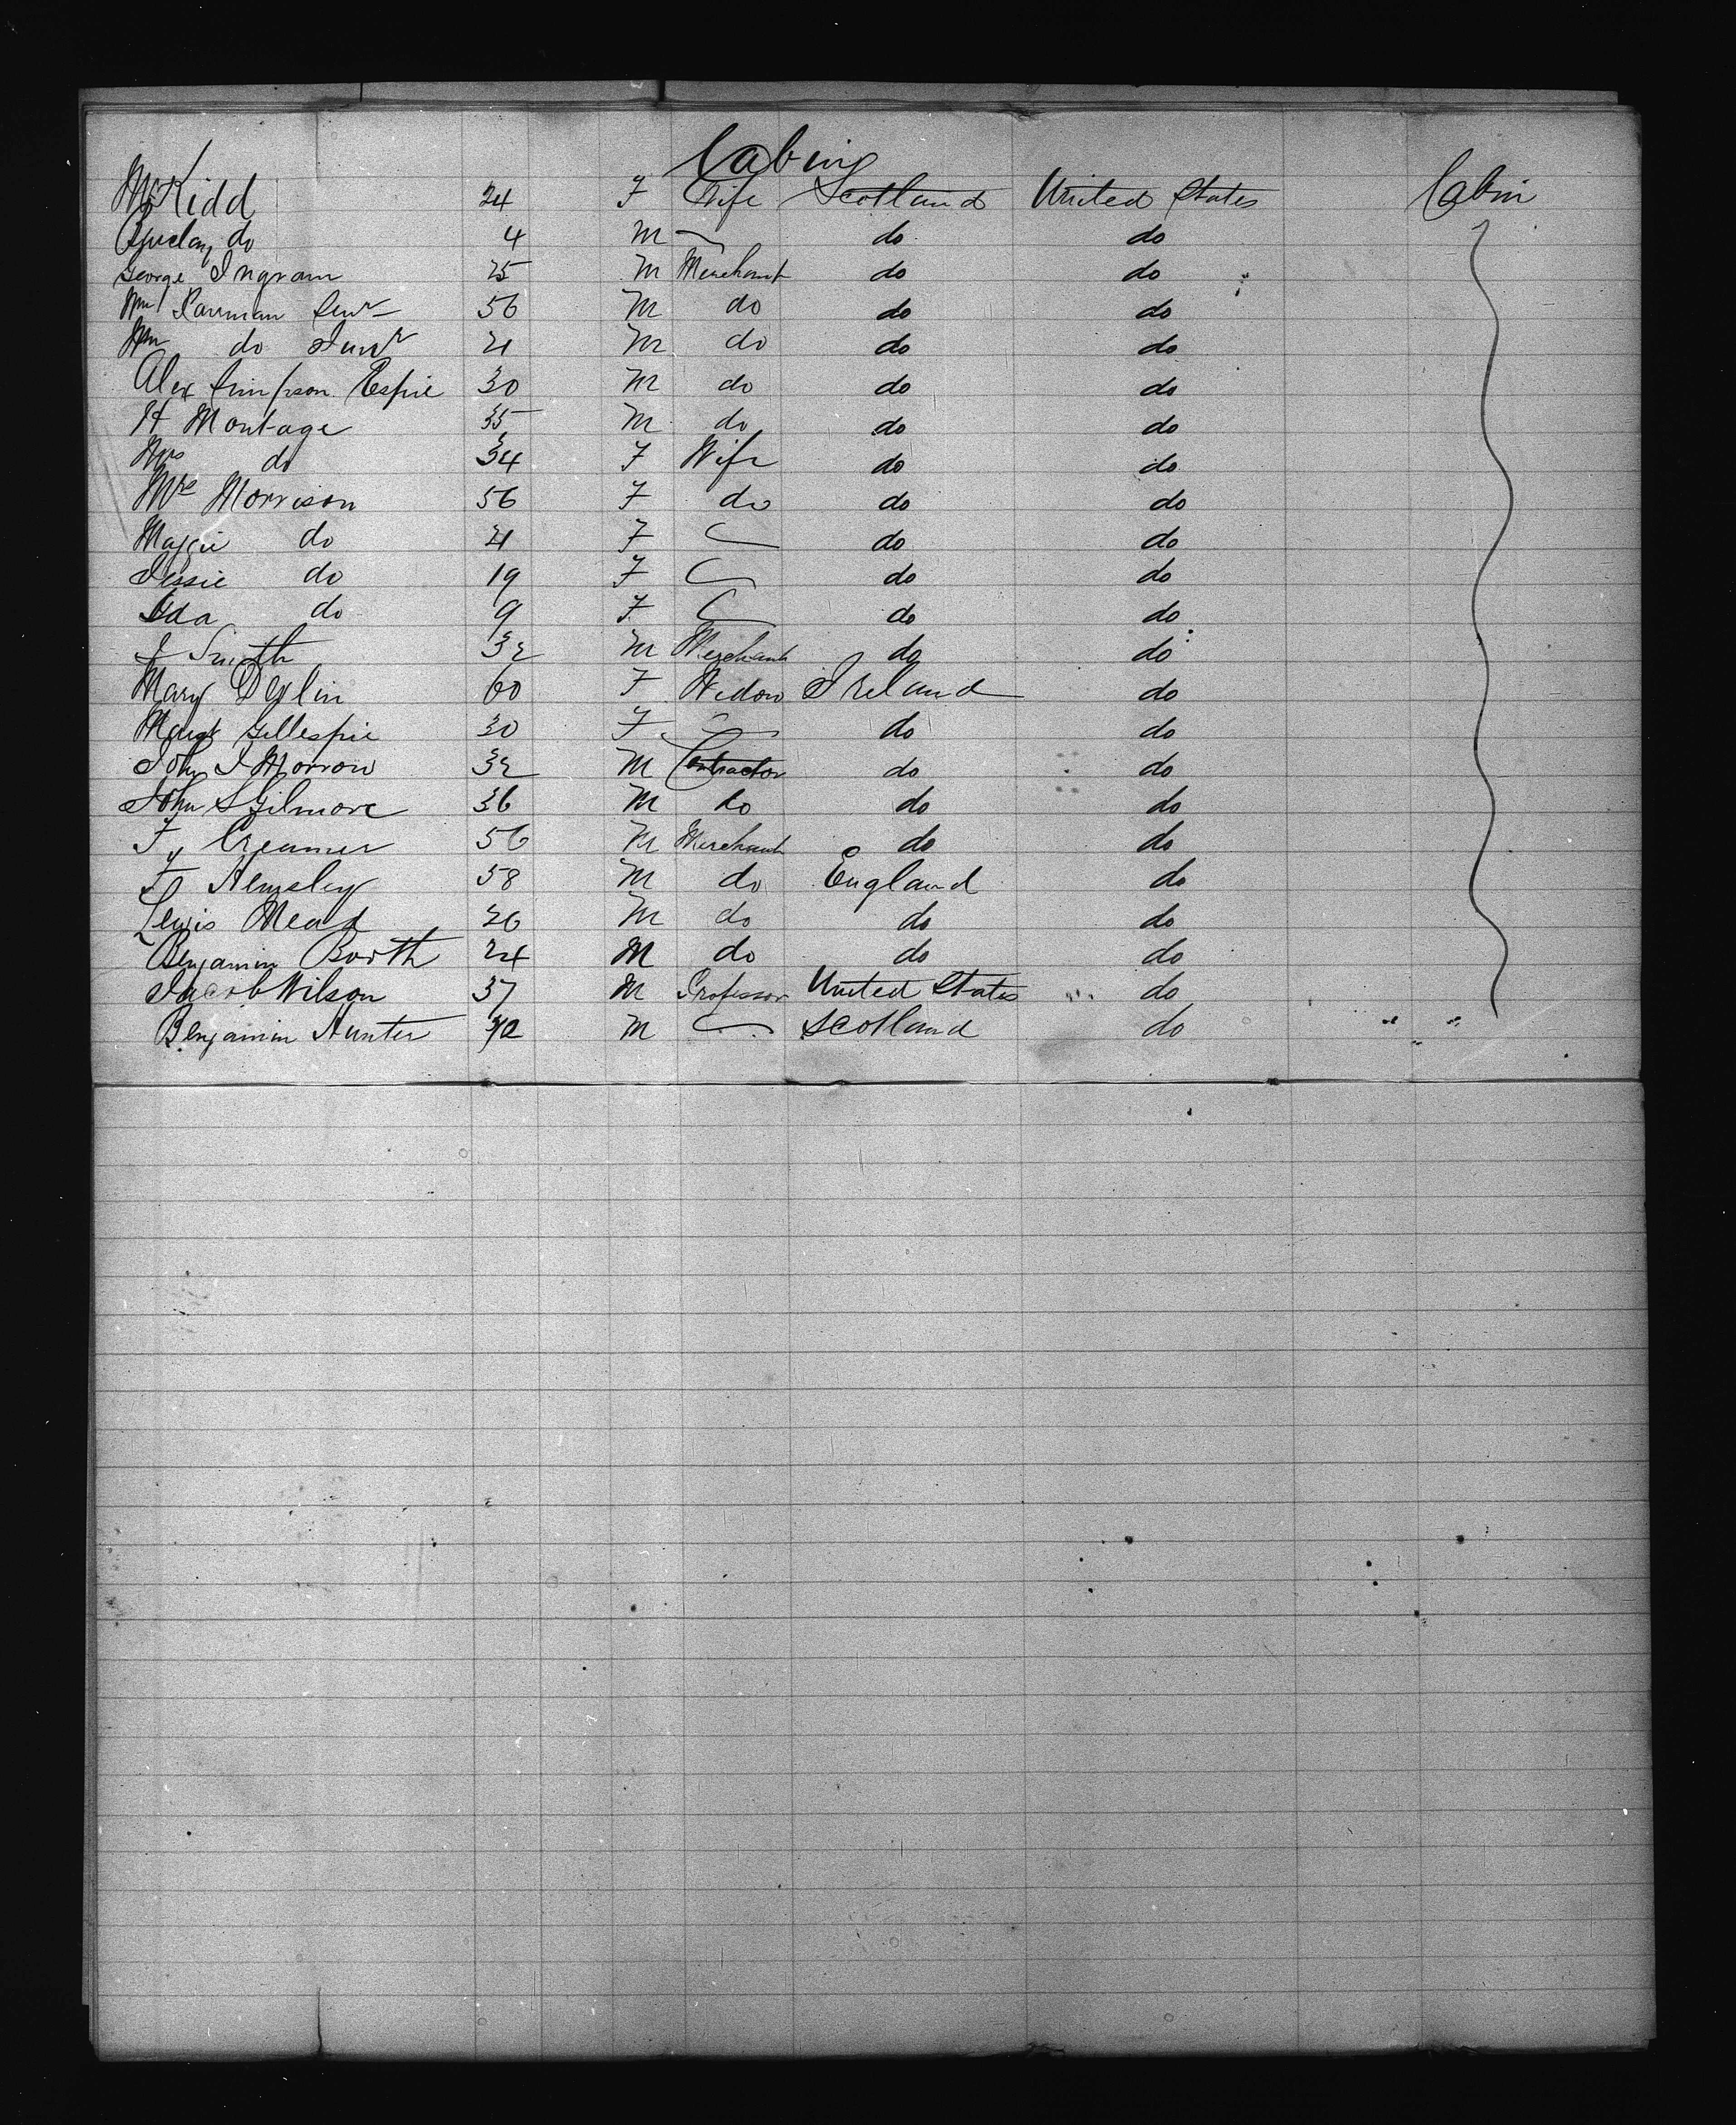 Cabin
Mrs Kidd 24 F Wife Scotland United States Cabin
do 4 M do do
George Ingram 25 M Merchant do do
Wm Parman Senr 56 M do do do
Wm do Junr 21 M do do do
Alex Simpson Espie 30 M do do do
H Montage 35 M do do do
Mrs do 34 F Wife do do
Mrs Morrison 56 F do do do
Maggie do 21 F do do
Jessie do 19 F do do
Ida do 9 F do do
J Smith 32 M Merchant do do
Mary Devlin 60 F Widow Ireland do
Margt Gillespie 30 F do do
John J Morrow 32 M Contractor do do
John S Gilmore 36 M do do do
Creamer 56 M Merchant do do
Hemsley 58 M do England do
Lewis Mead 26 M do do do
Benjamin Booth 24 M do do do
Jacob Wilson 37 M Professor United States do
Benjamin Hunter M Scotland do